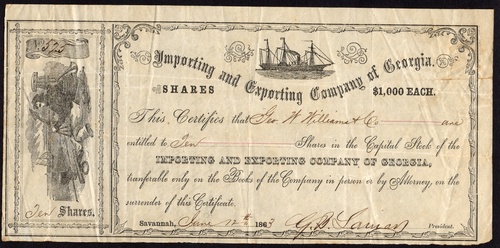 Importing and Exporting Company of Georgia.
SHARES $1,000 EACH.
This Certifies that Geo W Williams & Co are
entitled to Ten Shares in the Capital Stock of the
IMPORTING AND EXPORTING COMPANY OF GEORGIA,
tranferable only on the Books of the Company in person or by Attorney, on the
surrender of this Certificate.
Ten Shares.
Savannah, June 12th 1863 G. B. Lamar President.